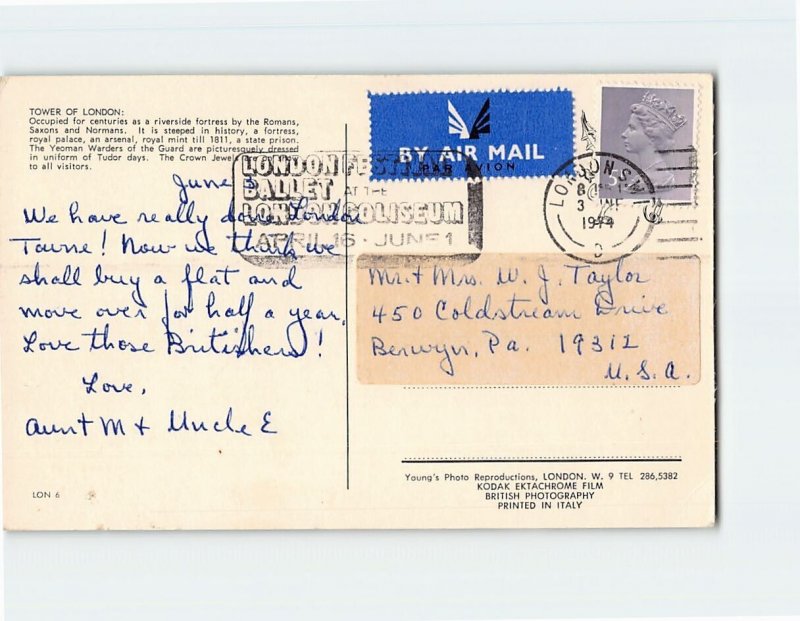 TOWER OF LONDON:
Occupied for centuries as a riverside fortress by the Romans,
Saxons and Normans. It is steeped in history, a fortress,
royal palace, an arsenal, royal mint till 1811, a state prison.
The Yeoman Warders of the Guard are picturesquely dressed
in uniform of Tudor days. The Crown Jewels
to all visitors.
June
We have really done London
Towne! Now we think we
shall buy a flat and
move over for half a year.
Love those Britishers!
Love,
Aunt M + Uncle E
LON 6
LONDON FESTIVAL
BALLET AT THE
LONDON COLISEUM
APRIL 16 - JUNE 1
BY AIR MAIL
PAR AVION
LONDON S.W.1
3
1974
D
Mr. + Mrs. W. J. Taylor
450 Coldstream Drive
Berwyn, Pa. 19312
U.S.A.
Young's Photo Reproductions, LONDON. W. 9 TEL 286,5382
KODAK EKTACHROME FILM
BRITISH PHOTOGRAPHY
PRINTED IN ITALY